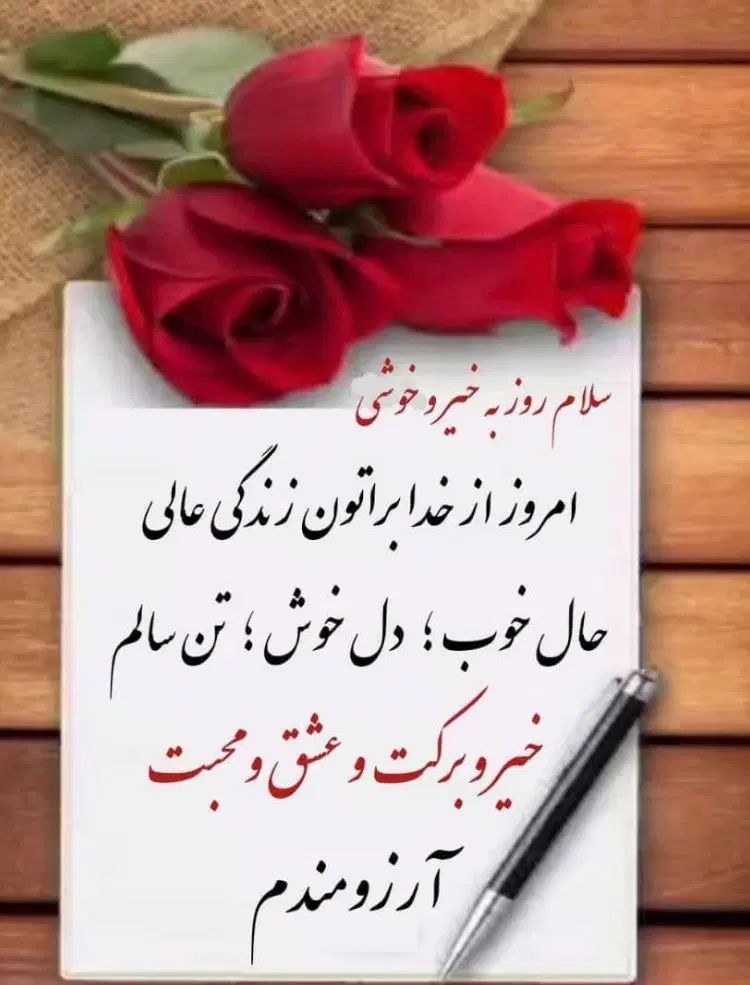 سلام روز به خیر و خوشی
امروز از خدا براتون زندگی عالی
حال خوب ؛ دل خوش ؛ تن سالم
خیر و برکت و عشق و محبت
آرزومندم